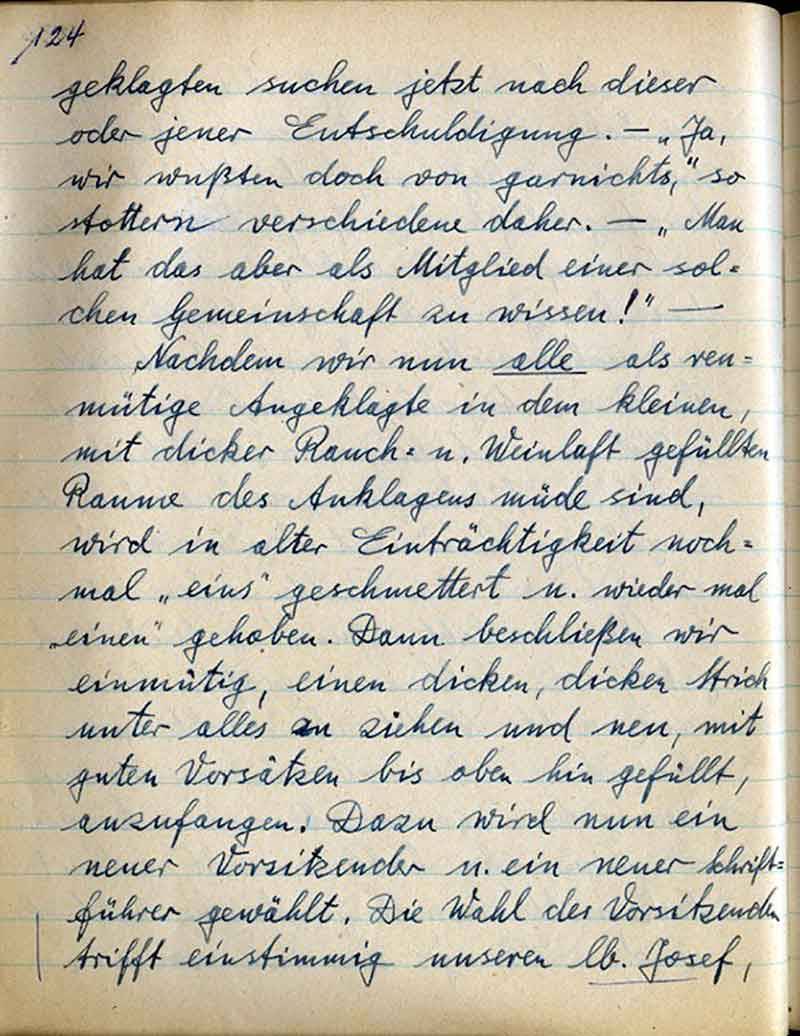 124
geklagten suchen jetzt nach dieser
oder jener Entschuldigung. — „Ja,
wir wußten doch von garnichts," so
stottern verschiedene daher. — „Man
hat das aber als Mitglied einer sol=
chen Gemeinschaft zu wissen!" —
Nachdem wir nun alle als reu=
mütige Angeklagte in dem kleinen,
mit dicker Rauch= u. Weinluft gefüllten
Raume des Anklagens müde sind,
wird in alter Einträchtigkeit noch=
mal „eins" geschmettert u. wieder mal
„einen" gehoben. Dann beschließen wir
einmütig, einen dicken, dicken Strich
unter alles zu ziehen und neu, mit
guten Vorsätzen bis oben hin gefüllt,
anzufangen. Dazu wird nun ein
neuer Vorsitzender u. ein neuer Schrift=
führer gewählt. Die Wahl des Vorsitzenden
trifft einstimmig unseren lb. Josef,